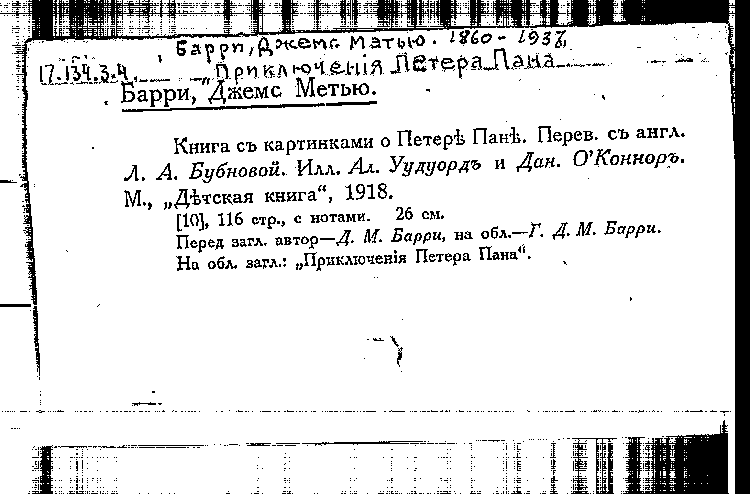 Барри, Джемс Матью. 1860-1937,
17.134.3.4. „Приключенія Петера Пана
Барри, Джемс Метью.
Книга съ картинками о Петерѣ Панѣ. Перев. съ англ.
Л. А. Бубновой. Илл. Ал. Уудуордъ и Дан. О'Конноръ.
М., „Дѣтская книга“, 1918.
[10], 116 стр., с нотами. 26 см.
Перед загл. автор—Д. М. Барри, на обл.—Г. Д. М. Барри.
На обл. загл.: „Приключенія Петера Пана“.